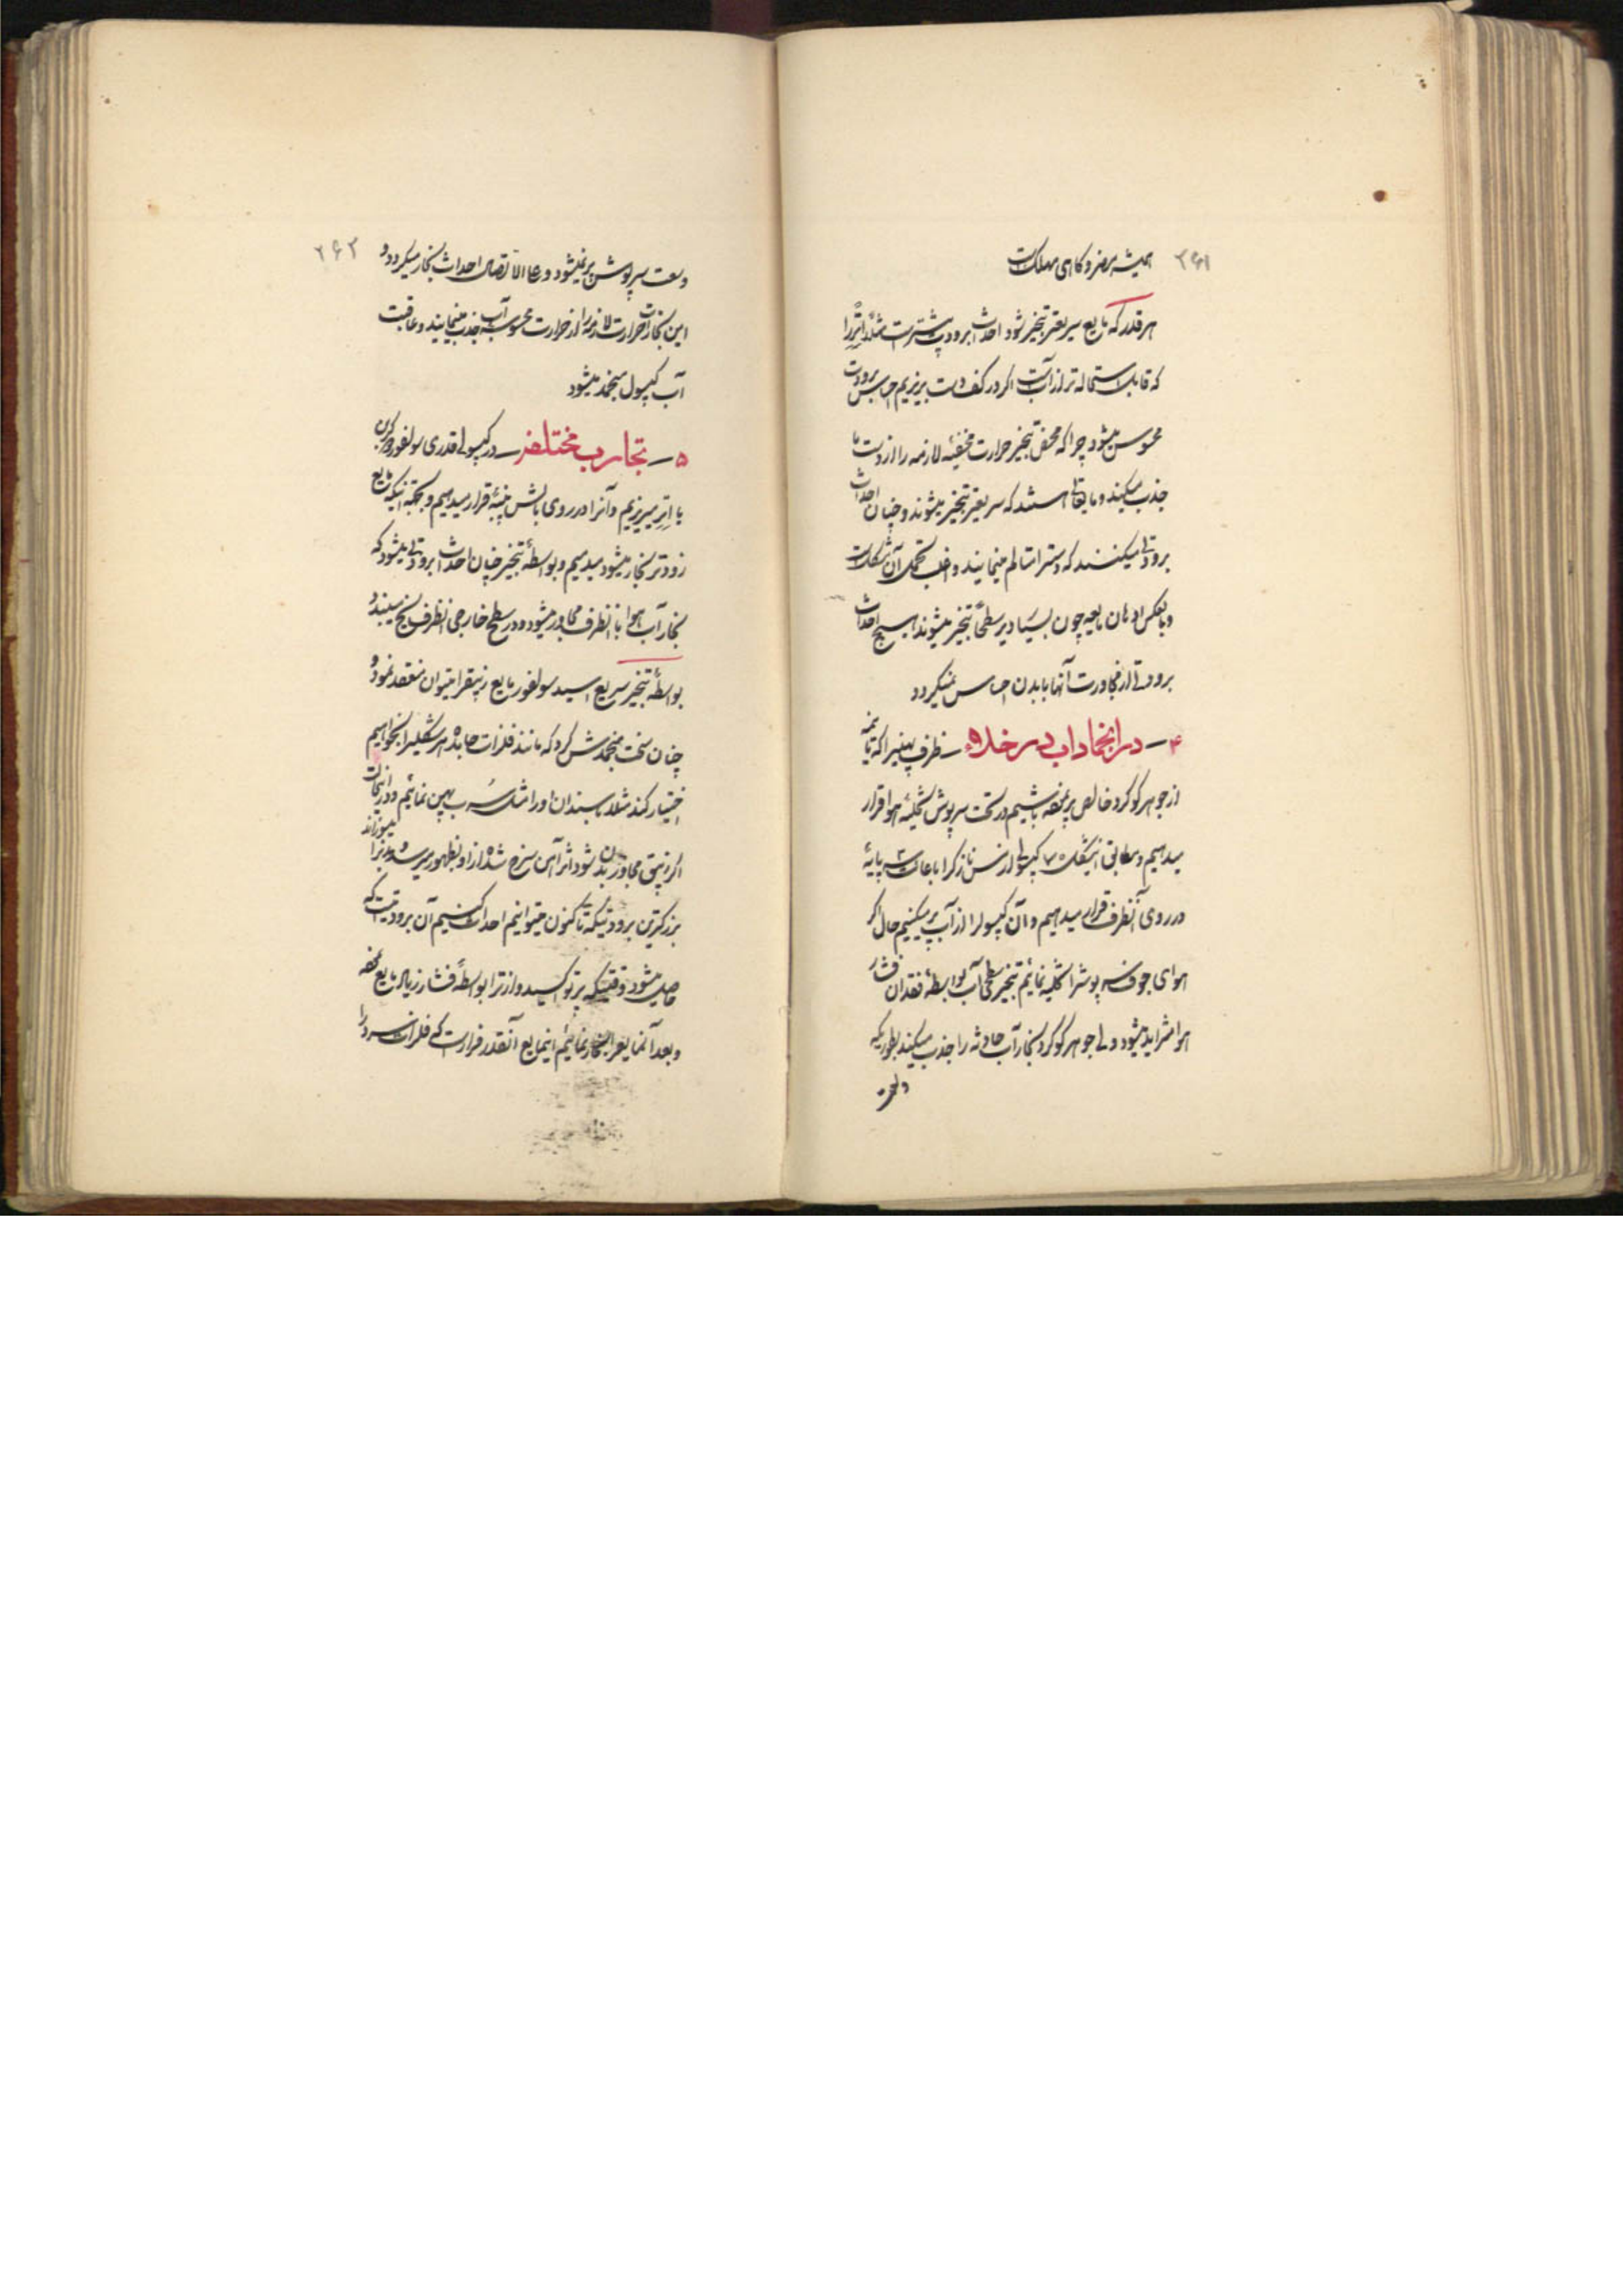 ۲۶۱
همیشه مضر و گاهی مهلک است
هر قدر که مایع سریعتر تبخیر شود احداث برودت بیشتر است مثلاً اتر را
که قابل استحاله تر از آب است اگر در کف دست بریزیم احساس برودت
محسوس میشود چرا که محض تبخیر حرارت مخفیه لازمه را از دست ما
جذب میکند و مایعاتی هستند که سریعتر تبخیر میشوند و چنان احداث
برودتی میکنند که دست را متالم مینمایند و اغلب تحمل آن مشکل است
و بالعکس ادهان مایعه چون بسیار دیر سطحاً تبخیر میشوند هیچ احداث
برودتی از مجاورت آنها با بدن احساس نمیگردد
۴ — در انجماد اب در خلاء — ظرف پهنی را که تا نیمه
از جوهر گوگرد خالص پر نموده باشیم در تحت سرپوش تخلیه هوا قرار
میدهیم و مطابق این شکل ۷۰ کپسولی از مس نازک را با عانت سه پایه
در روی آنظرف قرار میدهیم و آن کپسول را از آب پر میکنیم حال اگر
هوای جوف سرپوش را تخلیه نمائیم تبخیر سطحی آب بواسطهٔ فقدان فشار
هوا متزاید میشود ولی جوهر گوگرد بخار آب حادثه را جذب میکند بطوریکه
۲۶۲
وسعت سرپوش پر نمیشود و علی الاتصال احداث بخار میگردد و
این بخارات حرارت لازمه را از حرارت محسوسه آب جذب مینمایند و عاقبت
آب کپسول منجمد میشود
۵ — تجارب مختلفه — در کپسولی قدری سولفور دکربن
یا اتر میریزیم و آنرا در روی بالش پنبه قرار میدهیم و بجهة اینکه مایع
زودتر بخار میشود میدمیم و بواسطهٔ تبخیر چنان احداث برودتی میشود که
بخار آب هوا با آنظرف مجاور میشود و در سطح خارجی آنظرف یخ میبندد
بواسطهٔ تبخیر سریع اسید سولفور مایع زیبق را میتوان منعقد نمود و
چنان سخت منجمدش کرد که مانند فلزات جامده هر شکلی را بخواهیم
اختیار کند مثلا با سندان او را مثل سرب پهن نمائیم و در اینحالت
اگر زیبق مجاور بدن شود اثر آهن سرخ شده از او بظهور میرسد و بدن را میسوزاند
بزرگترین برودتیکه تا کنون میتوانیم احداث کنیم آن برودتیست که
حاصل میشود وقتیکه پرتوکسید دازت را بواسطهٔ فشار زیاد مایع نموده
و بعد آنمایع را تبخیر نمائیم اینمایع آنقدر فرار است که فلزات سرد را